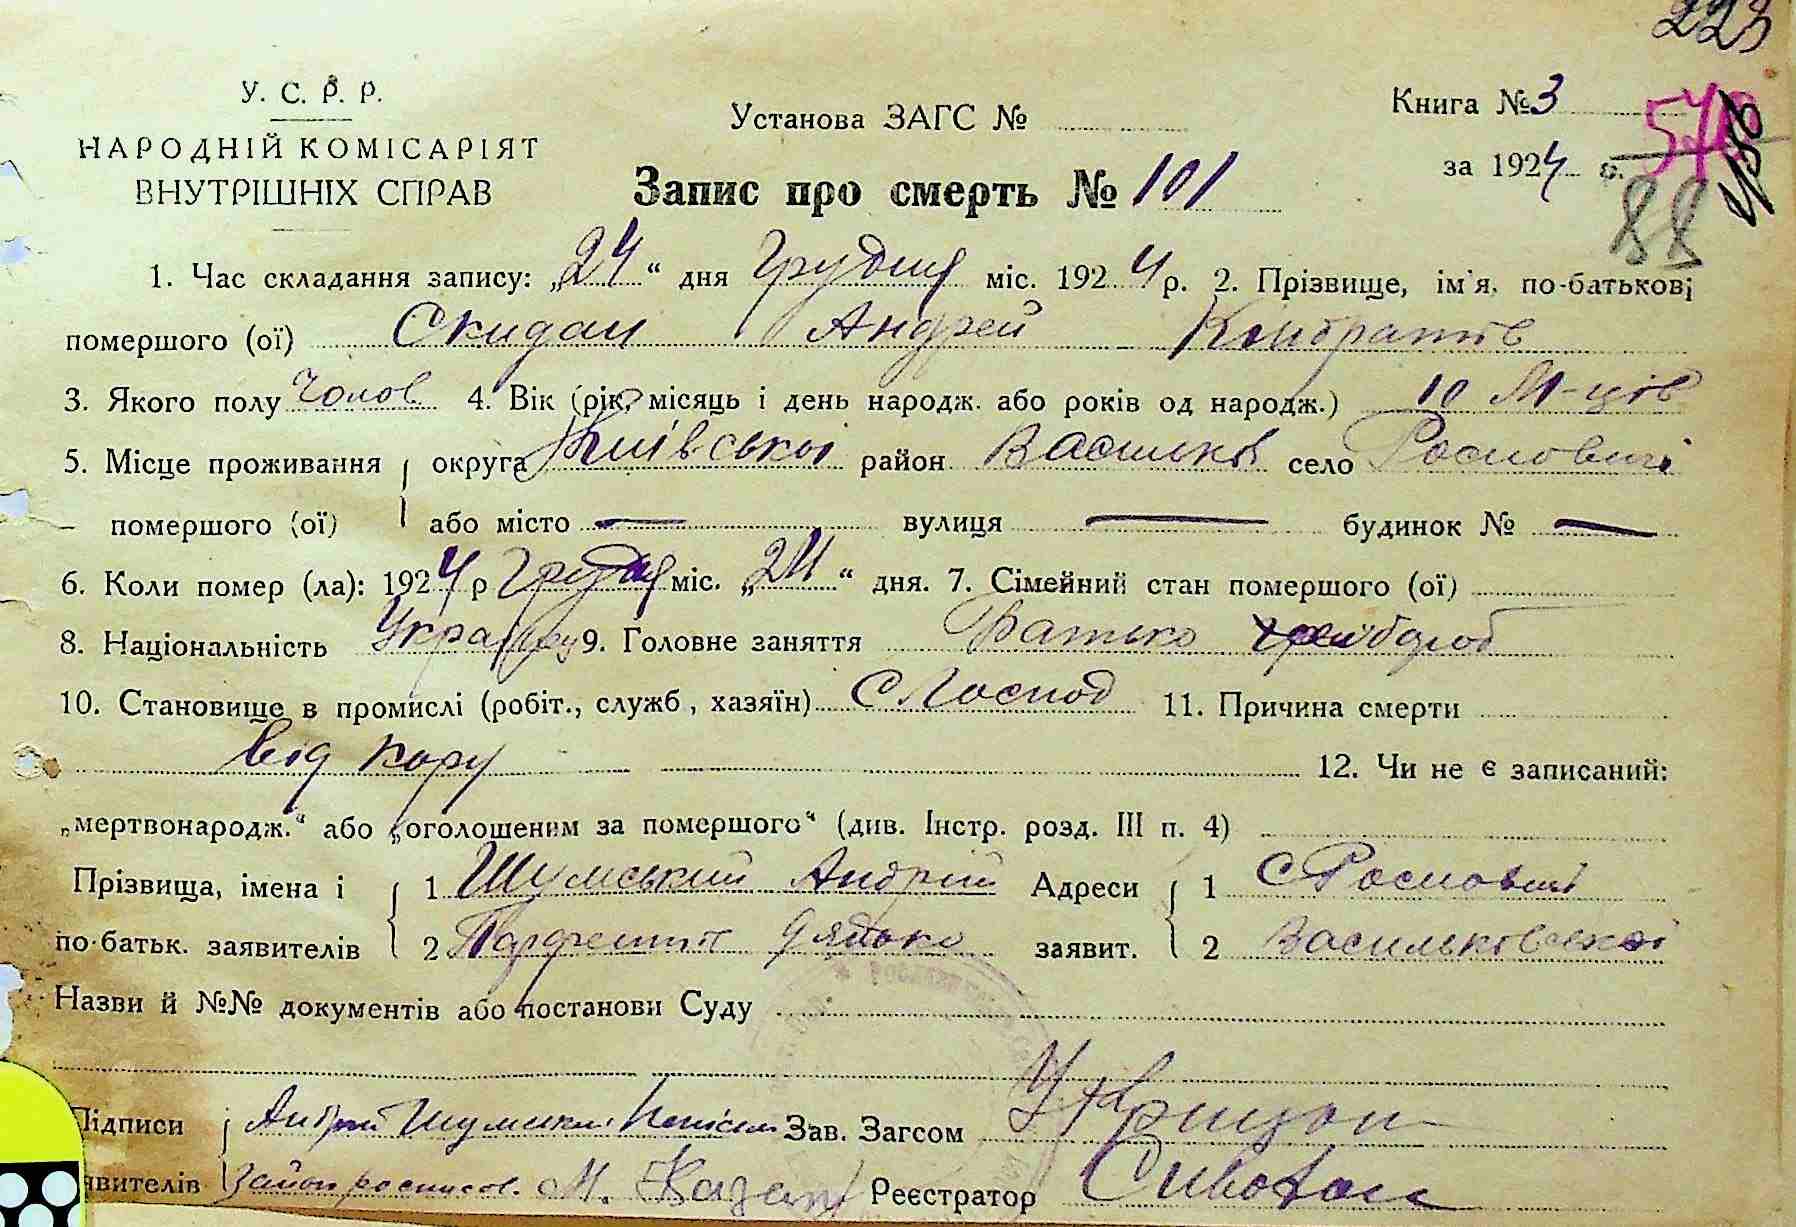 223
У. С. Р. Р.
НАРОДНІЙ КОМІСАРІЯТ
ВНУТРІШНІХ СПРАВ
Установа ЗАГС №
Книга № 3
за 1924 р.
88
Запис про смерть № 101
1. Час складання запису: „24“ дня Грудня міс. 1924 р. 2. Прізвище, ім'я, по-батькові
помершого (ої) Скидан Андрей Кондратів
3. Якого полу Чолов 4. Вік (рік, місяць і день народж. або років од народж.) 10 М-ців
5. Місце проживання округа Київської район Васильків село Росновичі
помершого (ої) або місто — вулиця — будинок № —
6. Коли помер (ла): 1924 р Грудня міс. „24“ дня. 7. Сімейний стан помершого (ої)
8. Національність 9. Головне заняття Батько хлібороб
10. Становище в промислі (робіт., служб, хазяїн) С Господ 11. Причина смерти
від кору 12. Чи не є записаний:
„мертвонародж.“ або „оголошеним за помершого“ (див. Інстр. розд. III п. 4)
Прізвища, імена і 1 Шумський Андрій Адреси 1 С Росновичі
по-батьк. заявителів 2 дядько заявит. 2 Васильковської
Назви й №№ документів або постанови Суду
Підписи Андрій Зав. Загсом
явителів М. Реєстратор